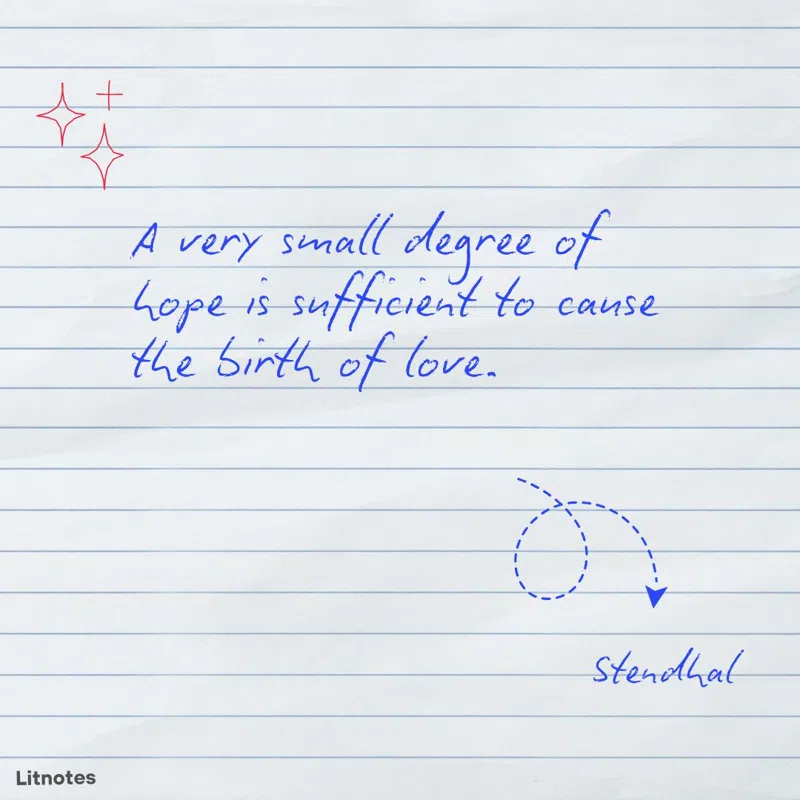 A very small degree of
hope is sufficient to cause
the birth of love.
Stendhal
Litnotes